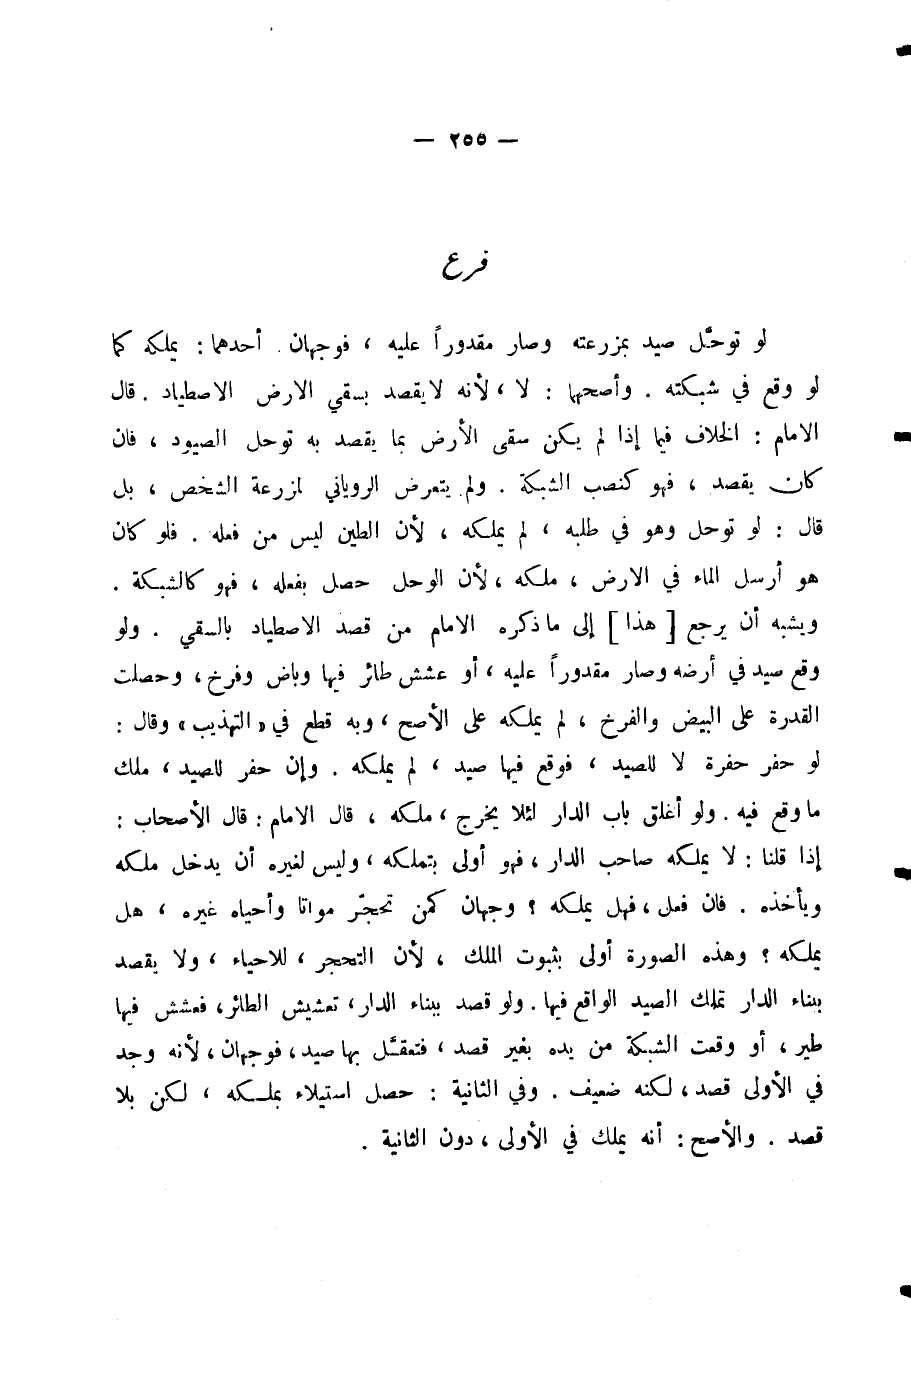 — ٢٥٥ —
فرع
لو توحَّل صيد بمزرعته وصار مقدوراً عليه ، فوجهان . أحدهما : يملكه كما
لو وقع في شبكته . وأصحهما : لا ، لأنه لايقصد بسقي الارض الاصطياد . قال
الامام : الخلاف فيما إذا لم يكن سقى الأرض بما يقصد به توحل الصيود ، فان
كان يقصد ، فهو كنصب الشبكة . ولم يتعرض الروياني لمزرعة الشخص ، بل
قال : لو توحل وهو في طلبه ، لم يملكه ، لأن الطين ليس من فعله . فلو كان
هو أرسل الماء في الارض ، ملكه ، لأن الوحل حصل بفعله ، فهو كالشبكة .
ويشبه أن يرجع [ هذا ] إلى ماذكره الامام من قصد الاصطياد بالسقي . ولو
وقع صيد في أرضه وصار مقدوراً عليه ، أو عشش طائر فيها وباض وفرخ ، وحصلت
القدرة على البيض والفرخ ، لم يملكه على الأصح ، وبه قطع في « التهذيب » وقال :
لو حفر حفرة لا للصيد ، فوقع فيها صيد ، لم يملكه . وإن حفر للصيد ، ملك
ماوقع فيه . ولو أغلق باب الدار لئلا يخرج ، ملكه ، قال الامام : قال الأصحاب :
إذا قلنا : لا يملكه صاحب الدار ، فهو أولى بتملكه ، وليس لغيره أن يدخل ملكه
ويأخذه . فان فعل ، فهل يملكه ؟ وجهان كمن تحجّر مواتا وأحياه غيره ، هل
يملكه ؟ وهذه الصورة أولى بثبوت الملك ، لأن التحجر ، للاحياء ، ولا يقصد
ببناء الدار تملك الصيد الواقع فيها . ولو قصد ببناء الدار ، تعشيش الطائر ، فعشش فيها
طير ، أو وقعت الشبكة من يده بغير قصد ، فتعقَّل بها صيد ، فوجهان ، لأنه وجد
في الأولى قصد ، لكنه ضعيف . وفي الثانية : حصل استيلاء بملكه ، لكن بلا
قصد . والأصح : أنه يملك في الأولى ، دون الثانية .